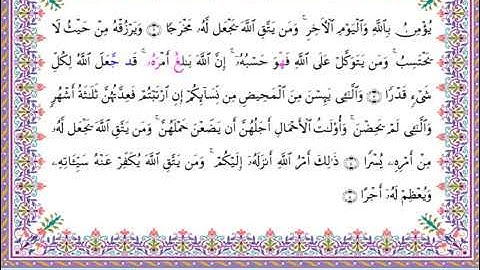 يُؤْمِنُ بِٱللَّهِ وَٱلْيَوْمِ ٱلْأَخِرِ ۚ وَمَن يَتَّقِ ٱللَّهَ يَجْعَل لَّهُۥ مَخْرَجًا وَيَرْزُقْهُ مِنْ حَيْثُ لَا
يَحْتَسِبُ ۚ وَمَن يَتَوَكَّلْ عَلَى ٱللَّهِ فَهْوَ حَسْبُهُۥٓ ۚ إِنَّ ٱللَّهَ بَٰلِغٌ أَمْرَهُۥ ۚ قَد جَّعَلَ ٱللَّهُ لِكُلِّ
شَىْءٍ قَدْرًا وَٱلَّٰٓـى يَئِسْنَ مِنَ ٱلْمَحِيضِ مِن نِّسَآئِكُمْ إِنِ ٱرْتَبْتُمْ فَعِدَّتُهُنَّ ثَلَٰثَةُ أَشْهُرٍ
وَٱلَّٰٓـى لَمْ يَحِضْنَ ۚ وَأُوْلَٰتُ ٱلْأَحْمَالِ أَجَلُهُنَّ أَن يَضَعْنَ حَمْلَهُنَّ ۚ وَمَن يَتَّقِ ٱللَّهَ يَجْعَل لَّهُۥ
مِنْ أَمْرِهِۦ يُسْرًا ذَٰلِكَ أَمْرُ ٱللَّهِ أَنزَلَهُۥٓ إِلَيْكُمْ ۚ وَمَن يَتَّقِ ٱللَّهَ يُكَفِّرْ عَنْهُ سَيِّـَٔاتِهِۦ
وَيُعْظِمْ لَهُۥٓ أَجْرًا